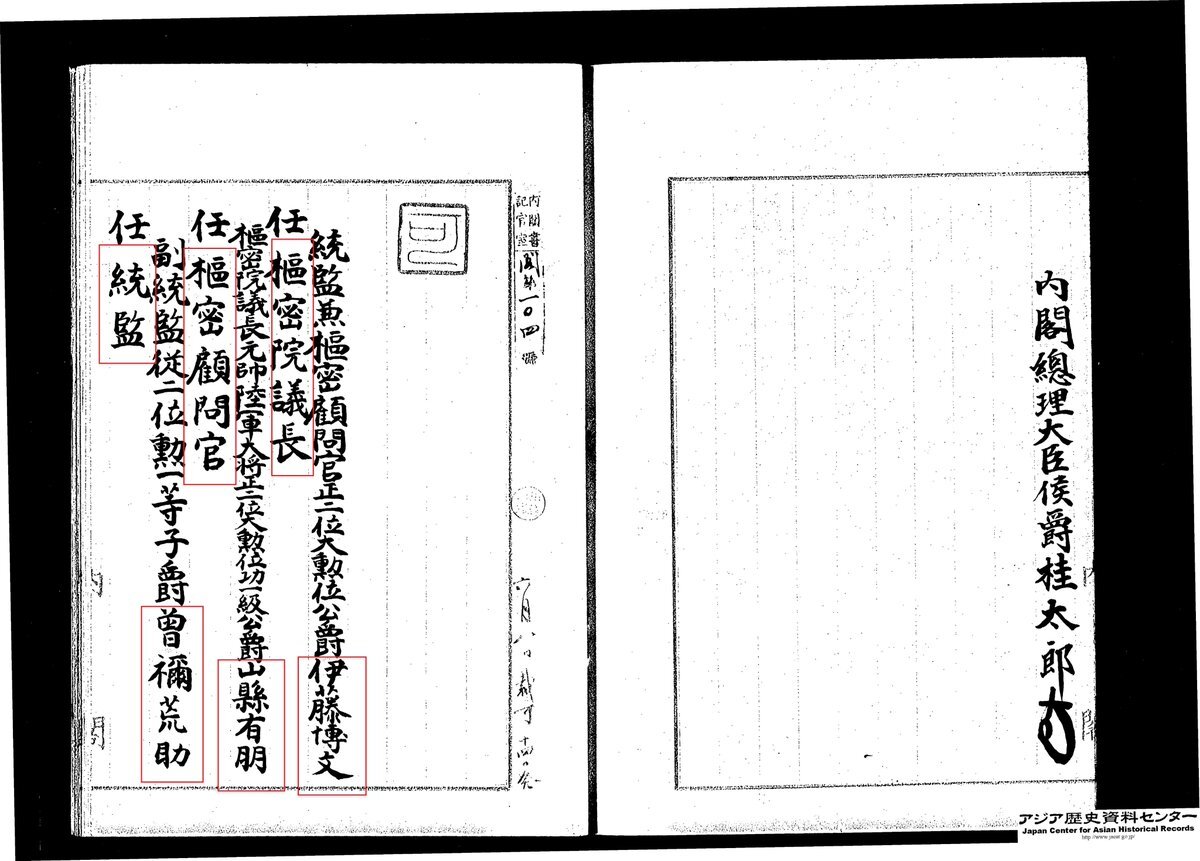 内閣總理大臣侯爵桂太郎
内閣書記官室
閣第一〇四號
六月八日裁可
可
統監兼樞密顧問官正二位大勲位公爵伊藤博文
任樞密院議長
樞密院議長元帥陸軍大将正二位大勲位功一級公爵山縣有朋
任樞密顧問官
副統監従二位勲一等子爵曾禰荒助
任統監
内閣
アジア歴史資料センター
Japan Center for Asian Historical Records
http://www.jacar.go.jp/